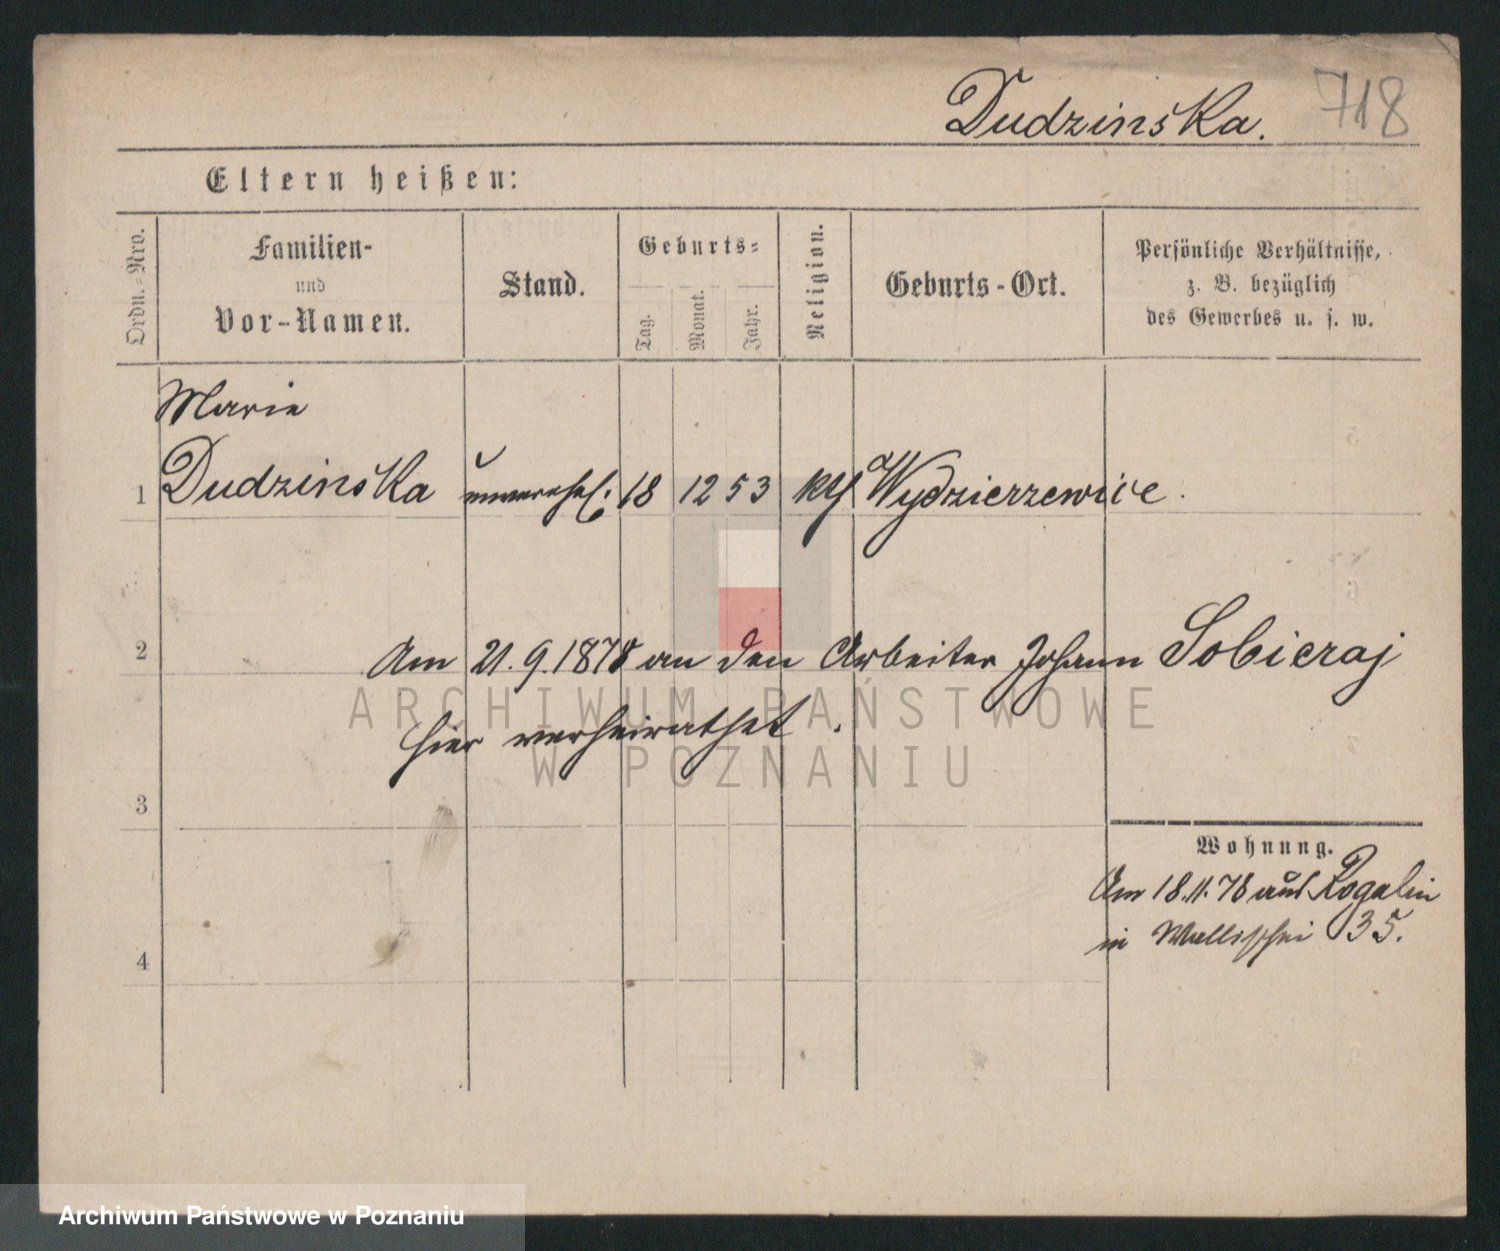 Dudzinska. 718
Eltern heißen:
Ordn.-Nro.
Familien-
und
Vor-Namen.
Stand.
Geburts-
Tag.
Monat.
Jahr.
Religion.
Geburts-Ort.
Persönliche Verhältnisse,
z. B. bezüglich
des Gewerbes u. s. w.
Marie
1 Dudzinska unverehel. 18 12 53 kth Wydzierzewice.
2 Am 21.9.1878 an den Arbeiter Johann Sobieraj
hier verheirathet.
ARCHIWUM PAŃSTWOWE
W POZNANIU
3
Wohnung.
Am 18.11.78 aus Rogalin
in Wallischei 35.
4
Archiwum Państwowe w Poznaniu